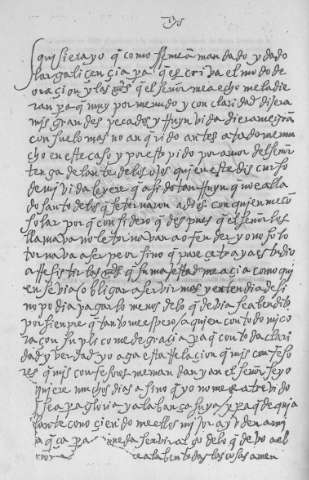 Jhs
quisiera yo q̃ como me an mandado y dado
larga liçençia pa q̃ escriva el modo de
oraçion y las mrds q̃ el señor me a echo me la die
ran pa q̃ muy por menudo y con claridad dijera
mis grandes pecados y rruyn vida diera me gran
consuelo mas no an q̃rido antes atado me mu
cho en este caso y por esto pido por amor del señor
tenga delante de los ojos quien este discurso
de mi vida leyere q̃ a sido tan rruyn q̃ no e alla
do santo de los q̃ se tornaron a dios con quien me con
solar porq̃ considero q̃ despues q̃ el señor los
llamava no le tornavan a ofender yo no solo
tornava a ser peor sino q̃ parece traya estudio
a rresistir las mrds q̃ su magestad me açia como qui
en se via obligar a servir mas y entendia de si
no podia pagar lo menos de lo q̃ devia sea bendito
por siempre q̃ tanto me espero a quien con todo mi co
raçon suplico me de graçia pa q̃ con toda clari
dad y verdad yo aga esta rrelaçion q̃ mis confeso
res me mandan y an el señor se yo
quiere muchos dias a sino q̃ yo no me e atrevido
y q̃ sea pa gloria y alabança suya y pa q̃ de aqui a
delante conoçiendo me ellos mijor ayuden a mi
flaqueça pa q̃ pueda servir algo de lo q̃ devo a el
señor a quien sienpre alaben todas las cosas amen